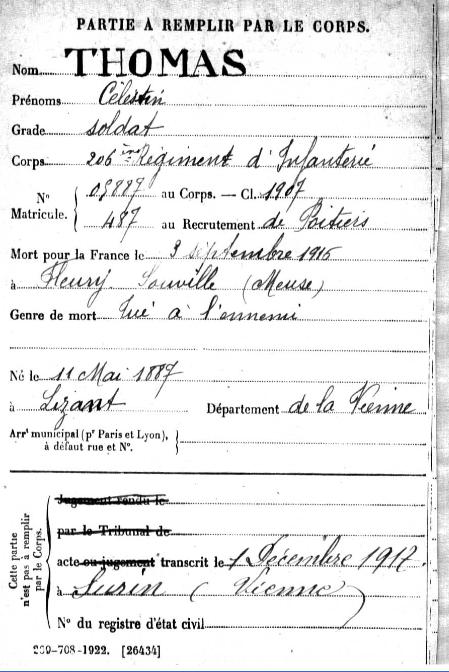 PARTIE À REMPLIR PAR LE CORPS.
Nom THOMAS
Prénoms Célestin
Grade soldat
Corps 206ème Régiment d'Infanterie
N° Matricule. 05887 au Corps. — Cl. 1907
487 au Recrutement de Poitiers
Mort pour la France le 3 septembre 1916
à Fleury Souville (Meuse)
Genre de mort Tué à l'ennemi
Né le 11 Mai 1887
à Lizant Département de la Vienne
Arrt municipal (pr Paris et Lyon),
à défaut rue et N°.
Cette partie n'est pas à remplir par le Corps.
Jugement rendu le
par le Tribunal de
acte ou jugement transcrit le 1 Décembre 1917.
à Surin (Vienne)
N° du registre d'état civil
-708-1922. [26434]